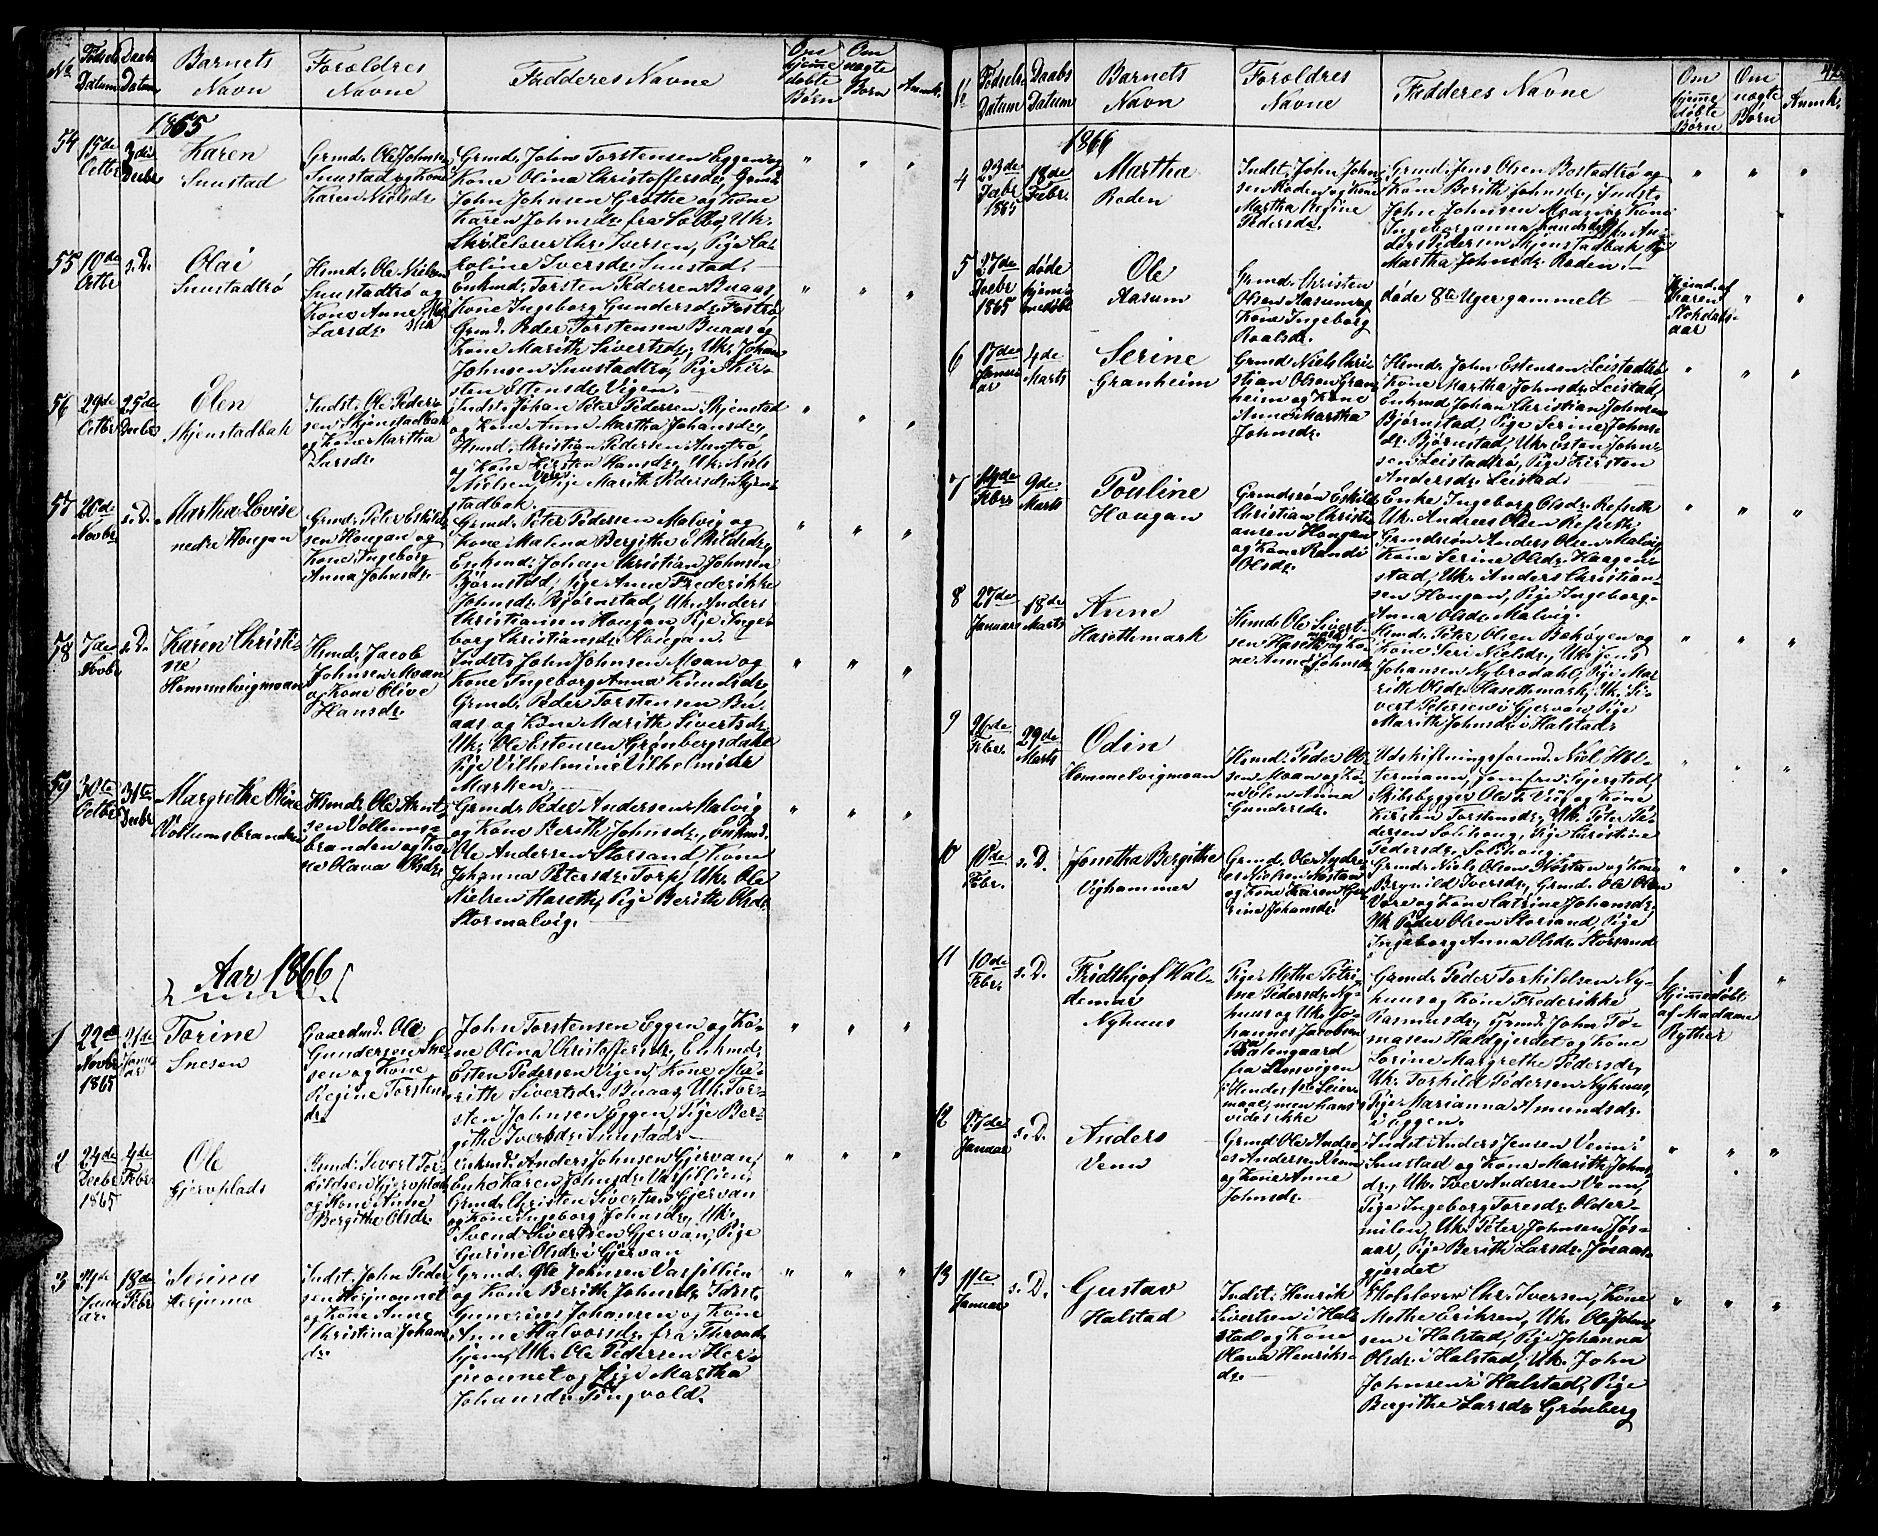 No
Fødsels
Datum
Daabs
Datum
Barnets
Navn
Forældres
Navne
Fædderes Navne
Om
hjeme
døbte
Børn
Om
uægte
Børn
Anmk.
1865
54
15de
Octbr
3die
Decbr
Karen
Snustad
Grmd. Ole Johnsen
Snustad og Kone
Karen Nielsdr.
Grmd. John Torstensen Eggen og
Kone Olina Christoffersdr, Grmd.
John Johnsen Grøthe og Kone
Karen Johnsdr fra Selbo, Uk.
Skolelærer Chr. Iversen, Pige Ca-
roline Iversdr. Snustad.
55
10de
Octbr
s. D.
Olai
Snustadtrø
Husmd. Ole Nielsen
Snustadtrø og
Kone Anne
Larsdr.
Enkmd. Torsten Pedersen Buaas,
Kone Ingeborg Gundersdr. Fostrø
Grmd. Peder Torstensen Buaas og
Kone Marith Sivertsdr, Uk. Johan
Johnsen Snustadtrø, Pige Kir-
sten Estensdr. Vigen.
56
29de
Octbr
25de
Decbr
Elen
Skjenstadbak
Indst. Ole Peder-
sen Skjenstadbak
og Kone Martha
Larsdr.
Indst. Johan Peter Pedersen Skjenstad
og Kone Anne Martha Johansdr,
Husmd. Christian Pedersen Aumtrø
og Kone Kirsten Hansdr, Uk. Niels
Nielsen Pige Marith Pedersdr Skjen-
stadbak.
57
20de
Novbr
s. D.
Martha Lovise
nedre Hougan
Grmd. Peter Eskild-
sen Hougan og
Kone Ingeborg
Anna Johnsdr.
Grmd. Peter Pedersen Malvig og
Kone Malena Bergithe Eskildsdr,
Enkmd. Johan Christian Johnsen
Bjørnstad, Pige Anne Frederikke
Johnsdr. Bjørnstad, Uk. Anders
Christiansen Hougan, Pige Inge-
borg Christiansdr. Hougan.
58
7de
Novbr
s. D.
Karen Christi-
ne
Hommelvigmoan
Husmd. Jacob
Johnsen Moan
og Kone Olive
Hansdr.
Indst. John Johnsen Moan og
Kone Ingeborg Anna Knudsdr.
Grmd. Peder Torstensen Bu-
aas og Kone Marith Sivertsdr.
Uk. Ole Estensen Grønbergsdahl
Pige Vilhelmine Vilhelmsdr.
Marken.
59
30te
Octbr
31te
Decbr
Margrethe Oline
Vollumsbranden
Husmd. Ole Arnt-
sen Vollums-
branden og Ko-
ne Olava Olsdr.
Grmd. Peder Andersen Malvig
og Kone Berith Johnsdr, Enkmd.
Ole Andersen Storsand, Kone
Johanna Petersdr. Torp, Uk. Ole
Nielsen Haseth, Pige Berith Olsdr
Stormalvig.
Aar 1866
1
22de
Novbr
1865
21te
Janu-
ar
Torine
Snesen
Gaardmd. Ole
Gundersen Sne-
sen og Kone
Regine Torstens-
dr.
John Torstensen Eggen og Ko-
ne Olina Christoffersdr, Enkmd.
Esten Pedersen Vigen, Kone Ma-
rith Sivertsdr. Buaas, Uk. Tor-
sten Johnsen Eggen, Pige Ber-
githe Iversdr. Snustad.
2
24de
Decbr
1865
4de
Febr.
Ole
Gjervplads
Husmd. Sivert Tor-
kildsen Gjervplads
og Kone Anne
Bergithe Olsdr.
Enkmd. Anders Johnsen Gjervan,
Enke Karen Johnsdr. Varsillien,
Grmd. Christen Sivertsen Gjervan
og Kone Ingeborg Johnsdr, Uk.
Svend Sivertsen Gjervan, Pige
Gurine Olsdr. i Gjervan
3
21de
Janu-
ar.
18de
Febr
Serina
Herjuma
Indst. John Peder-
sen Herjuaunet
og Kone Anne
Christina Johans-
dr.
Grmd. Ole Johnsen Varsillien
og Kone Berith Johnsdr, Indst.
Gunerius Johansen og Kone
Anne Halvorsdr. fra Thrond-
hjem, Uk. Ole Pedersen Her-
juaunet og Pige Martha
Johansdr. Tingvold.
42
No
Fødsels
Datum
Daabs
Datum
Barnets
Navn
Forældres
Navne
Fædderes Navne
Om
hjeme
døbte
Børn
Om
uægte
Børn
Anmk.
1866
4
23de
Decbr
1865
18de
Febr.
Martha
Roden
Indst. John John-
sen Roden og Kone
Martha Regine
Pedersdr.
Grmd. Jens Olsen Bostadtrø og
Kone Berith Johnsdr, Indst.
John Johnsen Moan og Kone
Ingeborganna Knudsdr, Uk. An-
ders Pedersen Skjenstadbak, Pige
Martha Johnsdr. Roden.
5
27de
Decbr
1865
døde
hjem-
medøbt
Ole
Aasum
Grmd. Christen
Olsen Aasum og
Kone Ingeborg
Roalsdr.
døde 8te Uger gammelt
Hjemd. af
Karen
Stokdals-
aar
6
17de
Janu-
ar
4de
Marts
Serine
Granheim
Grmd. Niels Chri-
stian Olsen Gran-
heim og Kone
Anne Martha
Johnsdr.
Husmd. John Estensen Leistadtrø
Kone Martha Johnsdr. Leistad,
Enkmd. Johan Christian Johnsen
Bjørnstad, Pige Serine Johns-
dr. Bjørnstad, Uk. Esten John-
sen Leistadtrø, Pige Kirsten
Andersdr. Leistad.
7
14de
Febr
9de
Marts
Pouline
Hougan
Grmdssøn Eskild
Christian Christi-
ansen Hougan
og Kone Randi
Olsdr.
Enke Ingeborg Olsdr. Refseth
Uk. Andreas Olsen Refseth,
Grmdssøn Anders Olsen Malvig,
Kone Serine Olsdr. Haagen-
stad, Uk. Anders Christian-
sen Hougan, Pige Ingeborg-
Anna Olsdr. Malvig.
8
27de
Januar
18de
Marts
Anne
Hasethmark
Husmd. Ole Sivert-
sen Hasethmark og Ko-
ne Anne Johnsdr.
Husmd. Peter Olsen Bakøgen og
Kone Seri Nielsdr, Uk. Jens
Johansen Nybrodahl, Pige Ma-
rith Olsdr. Hasethmark, Uk. Si-
vert Petersen i Gjervan, Pige
Marith Johnsdr. i Halstad.
9
26de
Febr.
29de
Marts
Odin
Hommelvigmoan
Husmd. Peder Ol-
sen Moan og Ko-
ne Elen Anna
Gundersdr.
Udskiftningsformd. Niel Hol-
termann, Jomfru Bjerstedt,
Skibsbygger Ole T. Viig og Kone
Kirsten Torstensdr, Uk. Peter Pe-
dersen Solihoug, Pige Christine
Pedersdr. Solihoug.
10
10de
Febr.
s. D.
Jonetha Bergithe
Vighammer
Grmd. Ole Andre-
as Nielsen Nøstan
og Kone Karen Cat-
rine Johansdr.
Grmd. Niels Olsen Nøstan og Kone
Brynild Iversdr, Grmd. Ole Olsen
Være og Kone Catrine Johansdr,
Uk. Peder Olsen Storsand, Pige
Ingeborg Anna Olsdr. Storsand.
11
10de
Febr.
s. D.
Fridthjof Wal-
demar
Nyhuus
Pige Methe Petri-
ne Pedersdr. Ny-
huus og Uk. Jo-
hannes Jacobsen
Balengaard
fra Lensvigen
Hendes 1ste Leier-
maal, men hans
vides ikke
Grmd. Peder Torkildsen Ny-
huus og Kone Frederikke
Rasmusdr, Grmd. John To-
masen Haldgjerdet og Kone
Sorine Margrethe Pedersdr,
Uk. Torkild Pedersen Nyhuus,
Pige Marianna Amundsdr.
i Eggen.
Hjemmedøbt
af Madame
Rytter
1
12
27de
Januar
s. D.
Anders
Venn
Grmd Ole Andre-
as Andersen Venn
og Kone Anne
Johnsdr.
Indst. Anders Jensen Venn i
Snustad og Kone Marith Johns-
dr, Uk. Iver Andersen Venn,
Pige Ingeborg Toresdr. Older-
milen, Uk. Peter Johnsen Jøs-
aar, Pige Berith Larsdr. Jøsaas-
gjerdet
13
11te
Januar
s. D.
Gustav
Halstad
Indst. Henrik
Sivertsen i Hal-
stad og Kone
Olava Henriks-
dr.
Skolelærer Chr. Iversen, Kone
Methe Eriksen, Uk. Ole John-
sen i Halstad, Pige Johanna
Olsdr. i Halstad, Uk. John
Johnsen i Halstad, Pige
Bergithe Larsdr. Grønberg